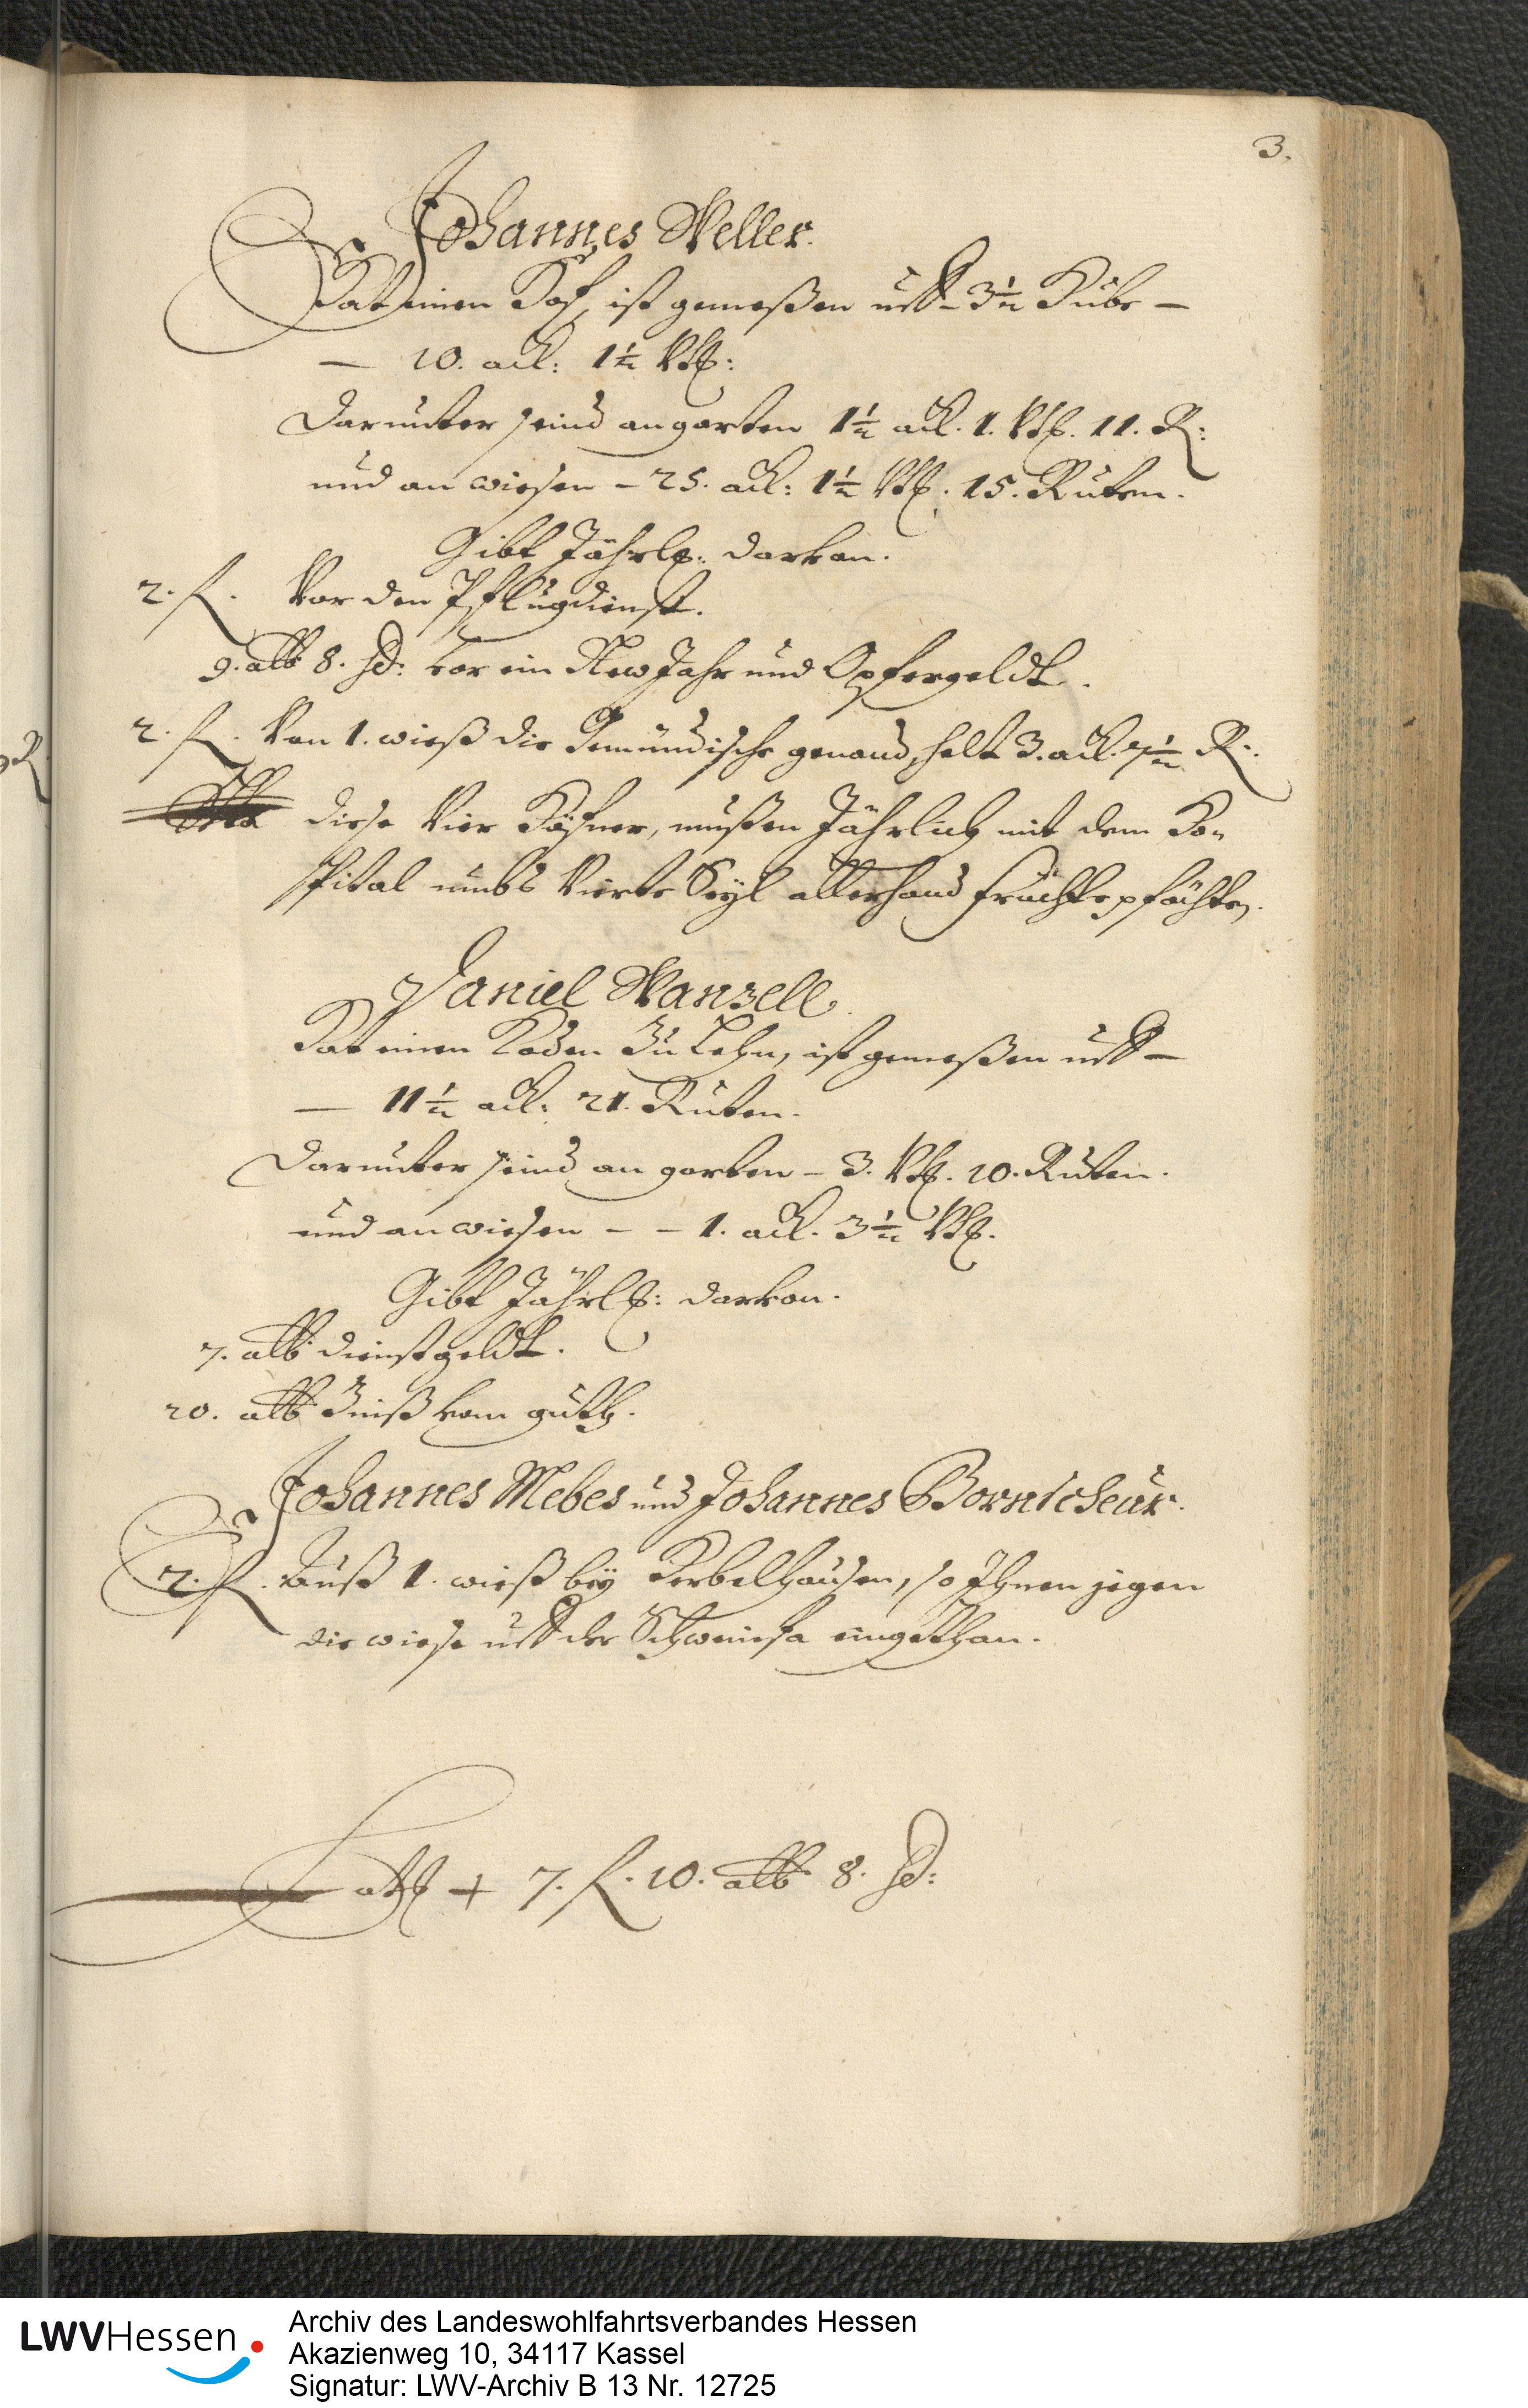 3.
Johannes Weller.
Hat einen Hof, ist gemeßen uff - 3½ Hube -
- 10. ack: 1½ Vtl:
Darunter seind an garten 1½ ack. 1. Vtl. 11. R:
und an wiesen - 25. ack: 1½ Vtl. 15. Ruten.
Gibt Jährl: darvon.
2. fl. Vor den Pflugdienst.
9. alb 8. hd: vor ein New Jahr und Opfergeldt.
2. fl. Von 1. wieß die Gemündische genand, helt 3. ack. 7½ R:
diese Vier Höfner, mußen Jährlich mit dem Ho-
spital umbs Vierte Theyl allerhand früchte pfächten.
Daniel Wanzell.
Hat einen Koden zu Lehn, ist gemeßen uff -
- 11½ ack: 21. Ruten.
Darunter seind an garten - 3. Vtl. 10. Ruten.
und an wiesen - - 1. ack. 3½ Vtl.
Gibt Jährl: darvon.
7. alb dienstgeldt.
20. alb Zinß vom guth.
Johannes Mebes und Johannes Bornscheur.
2. fl. 1. wieß bey Kerbelhausen, so Ihnen gegen
die wiese uff der Schweinfa eingethan.
Lats + 7. fl. 10. alb 8. hd:
LWVHessen
Archiv des Landeswohlfahrtsverbandes Hessen
Akazienweg 10, 34117 Kassel
Signatur: LWV-Archiv B 13 Nr. 12725